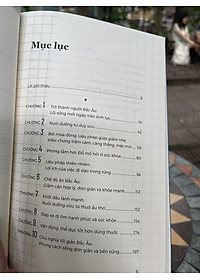 Mục lục
Lời giới thiệu 6
CHƯƠNG 1 Trở thành người Bắc Âu:
Lối sống mới ngập tràn sinh lực
CHƯƠNG 2 Nuôi dưỡng tư duy sisu
CHƯƠNG 3 Bơi mùa đông: Liệu pháp giúp giảm nhẹ
triệu chứng trầm cảm, căng thẳng, mệt mỏi
CHƯƠNG 4 Phòng tắm hơi: Đổ mồ hôi vì sức khỏe
CHƯƠNG 5 Liệu pháp thiên nhiên:
Lợi ích của việc đi dạo trong rừng
CHƯƠNG 6 Chế độ ăn Bắc Âu:
Giảm cân hợp lý, đơn giản và khỏe mạnh
CHƯƠNG 7 Khởi đầu lành mạnh:
Nuôi dưỡng sisu từ thuở ấu thơ
CHƯƠNG 8 Đạp xe đi tìm hạnh phúc và sức khỏe
CHƯƠNG 9 Vận động thể dục tốt hơn dùng thuốc 175
CHƯƠNG 10 Chủ nghĩa tối giản Bắc Âu:
Phong cách sống đơn giản và bền vững